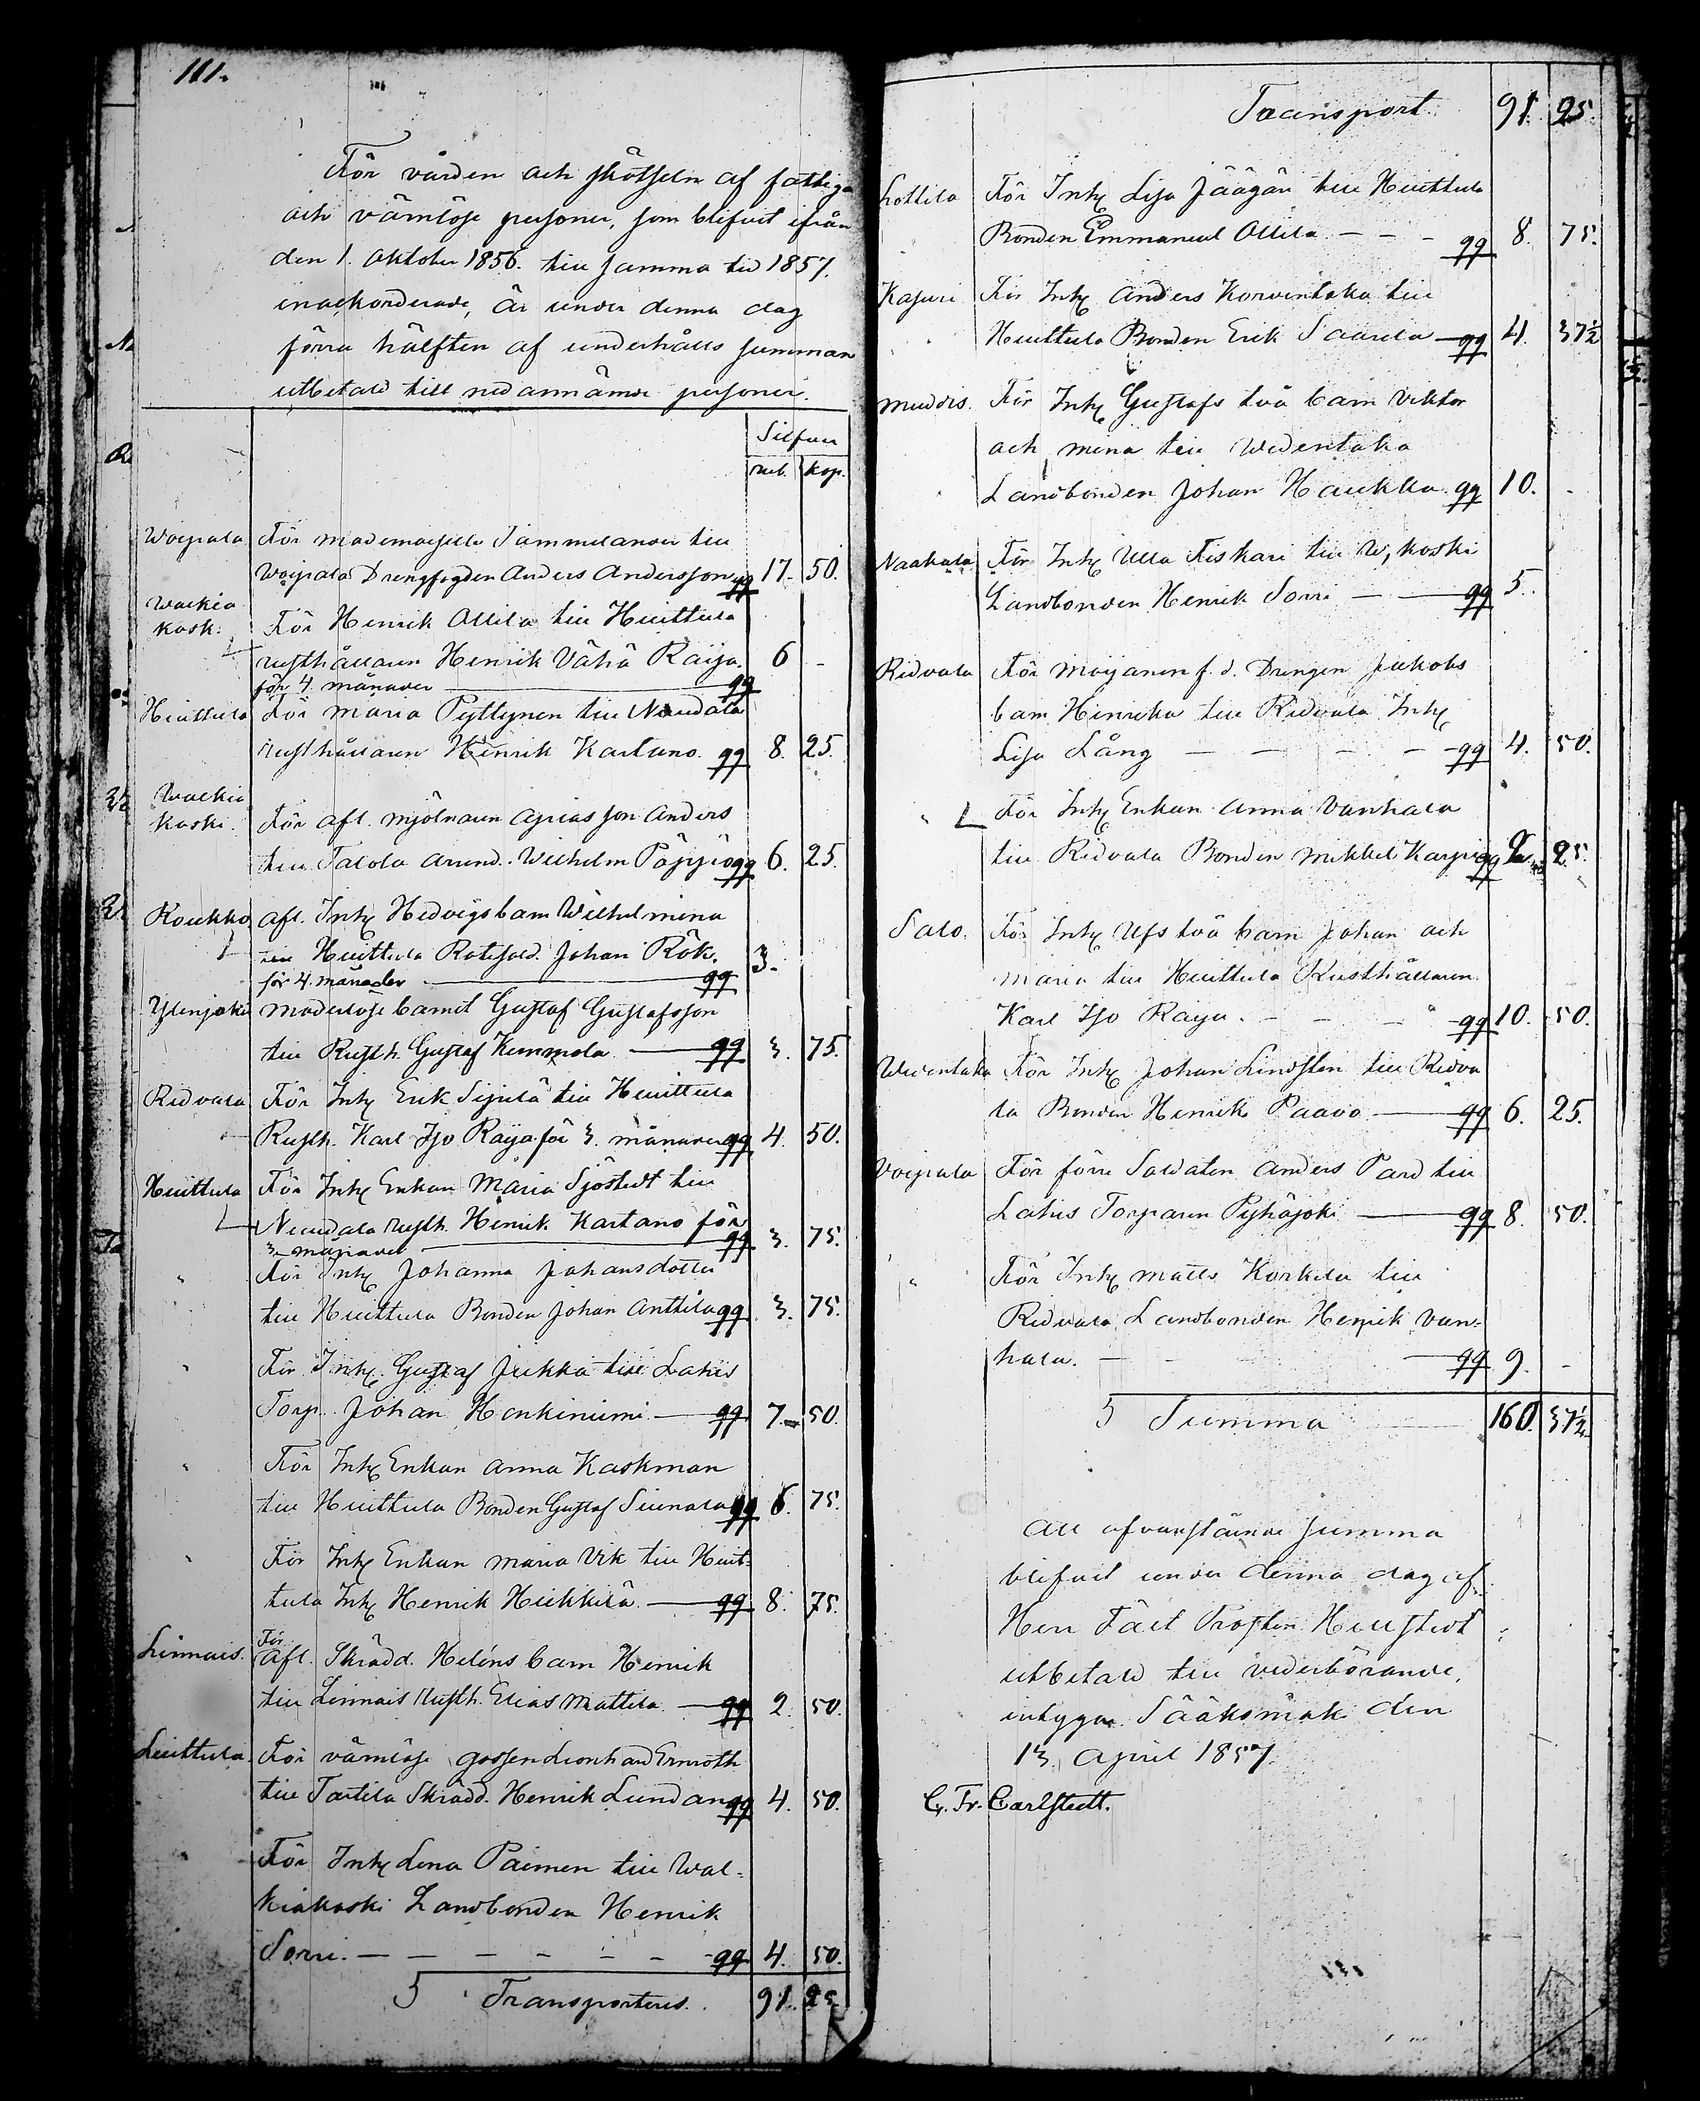 111.
För vården och skötseln af fattiga
och värnlöse personer, som blifvit ifrån
den 1. Oktober 1856. till samma tid 1857.
inackorderade, är under denna dag
förra hälften af underhålls summan
utbetald till nedannämde personer.
Silfver
rub. kop.
Woipala För Mademoiselle Tammelander till
Woipala Drengfogden Anders Andersson qq 17. 50.
Walkia
kosk. För Henrik Ollila till Huittula
rusthållaren Henrik Vähä Raija. 6 -
för 4 månader qq
Huittula För Maria Pyttynen till Naudala
rusthållaren Henrik Kartano. qq 8. 25.
Walkia
koski. För afl. mjölnaren Agrias son Anders
till Talola Arend. Wilhelm Päppiö qq 6. 25.
Roukko. afl. Inh. Hedvigs barn Wilhelmina
till Huittula Rotesold. Johan Rök. 3.
för 4. månader qq
Ylenjoki moderlöse barnet Gustaf Gustafsson
till Rusth. Gustaf Kummola qq 3. 75.
Ridvala För Inh. Erik Sipilä till Huittula
Rusth. Karl Iso Raija för 3. månader qq 4. 50.
Huittula För Inh. Enkan Maria Sjöstedt till
Naudala rusth. Henrik Kartano för
3 månader qq 3. 75.
" För Inh. Johanna Johansdotter
till Huittula Bonden Johan Anttila qq 3. 75.
" För Inh. Gustaf Jukka till Lahis
Torp. Johan Honkiniemi qq 7. 50.
" För Inh. Enkan Anna Kaskman
till Huittula Bonden Gustaf Siukola qq 6. 75.
" För Inh. Enkan Maria Vik till Huit-
tula Inh. Henrik Heikkilä qq 8. 75.
Linnais. För afl. Skrädd. Heléns barn Henrik
till Linnais Rusth. Elias Mattila qq 2. 50.
Huittula För värnlöse gossen Leonhard Ernroth
till Tarttila Skrädd. Henrik Lundan qq 4. 50.
" För Inh. Lena Paimen till Wal-
kiakoski Landbonden Henrik
Sorri. qq 4. 50.
S Transporteres. 91. 25.
Transport. 91. 25.
Lottila För Inh. Lisa Jäägär till Huittula
Bonden Emmanuel Ollila qq 8. 75.
Kajuri För Inh. Anders Korventaka till
" Huittula Bonden Erik Saarela qq 4. 37½
Muddis. För Inh. Gustafs två barn Viktor
och Mina till Wedentaka
Landbonden Johan Haukka. qq 10. -
Naakala För Inh. Ulla Fiskari till W. koski
Landbonden Henrik Sorri qq 5.
Ridvala För Moijanen f. d. Drengen Jakobs
barn Henrika till Ridvala Inh.
Lisa Lång qq 4. 50.
" För Inh. Enkan Anna Vanhala
till Ridvala Bonden Mikkel Karpio qq 2. 25.
Salo. För Inh. Ulfs två barn Johan och
Maria till Huittula Rusthållaren
Karl Iso Raija. qq 10. 50.
Wedentaka För Inh. Johan Lindsten till Ridva
la Bonden Henrik Paavo qq 6. 25.
Voipala För förre Soldaten Anders Pard till
Lahis Torparen Pyhäjoki qq 8. 50.
" För Inh. Matts Korkila till
Ridvala Landbonden Henrik Van-
hala. qq 9. -
S Summa 160. 37½
Att ofvanstående summa
blifvit under denna dag af
Herr Fält Prosten Heurstedt
utbetald till vederbörande,
intygar. Sääksmäki den
13 April 1857.
G. Fr. Carlstedt.